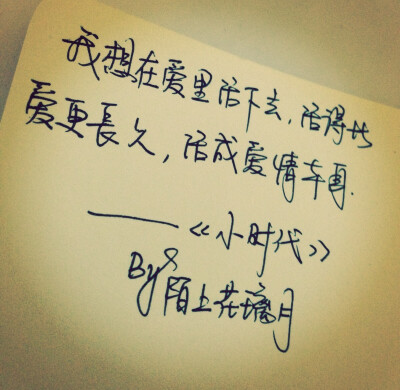 我想在爱里活下去,活得比
爱更長久,活成爱情本身.
——《小时代》
By 陌上花璃月